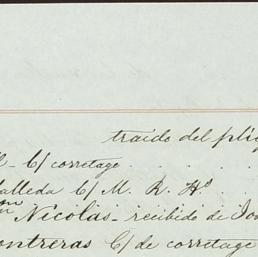 traido del plie
C/ corretage . . . .
alleda C/ M. R. Hº . .
Nicolas - recibido de Jo
ontreras C/ de corretage